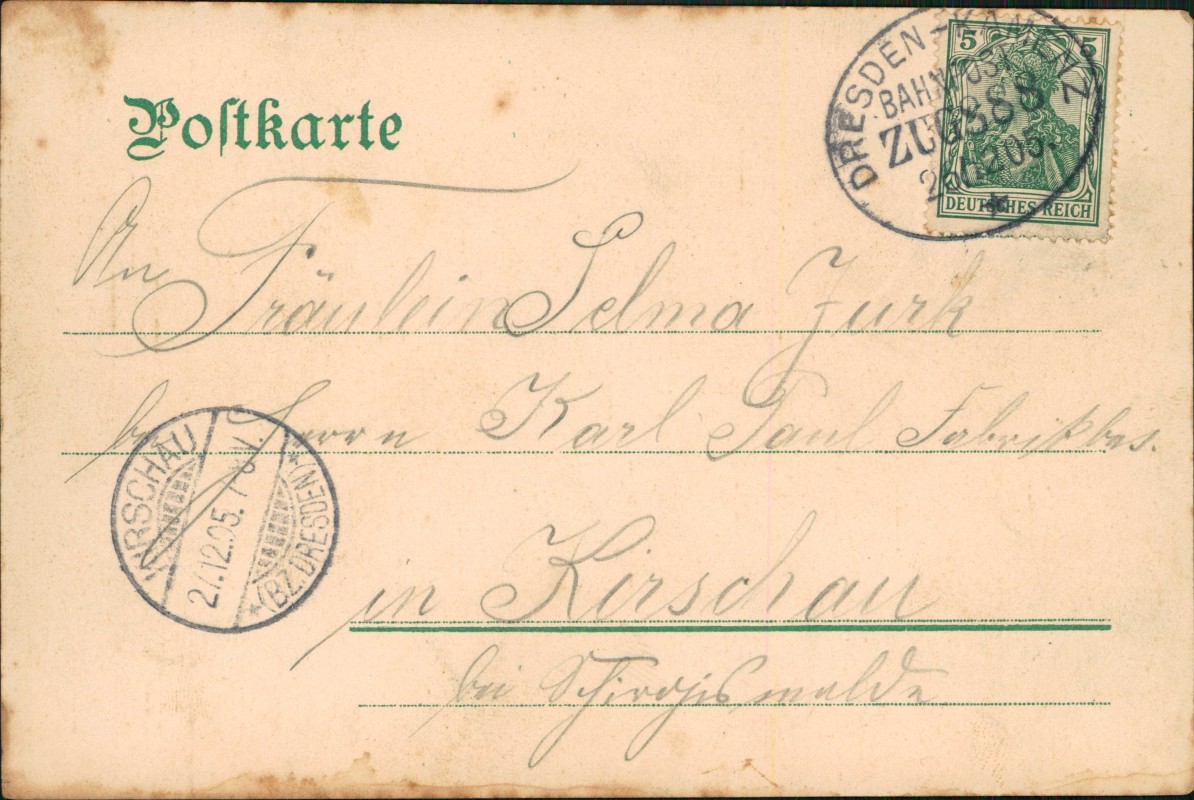 Postkarte
DRESDEN-KAMENZ
BAHNPOST
ZUG
12 05.
5 5
DEUTSCHES REICH
An
Fräulein Selma Zurk
bei Herrn Karl Paul Fabrikbes.
in Kirschau
bei Schirgiswalde
KIRSCHAU
12.05. 7
(BZ. DRESDEN)